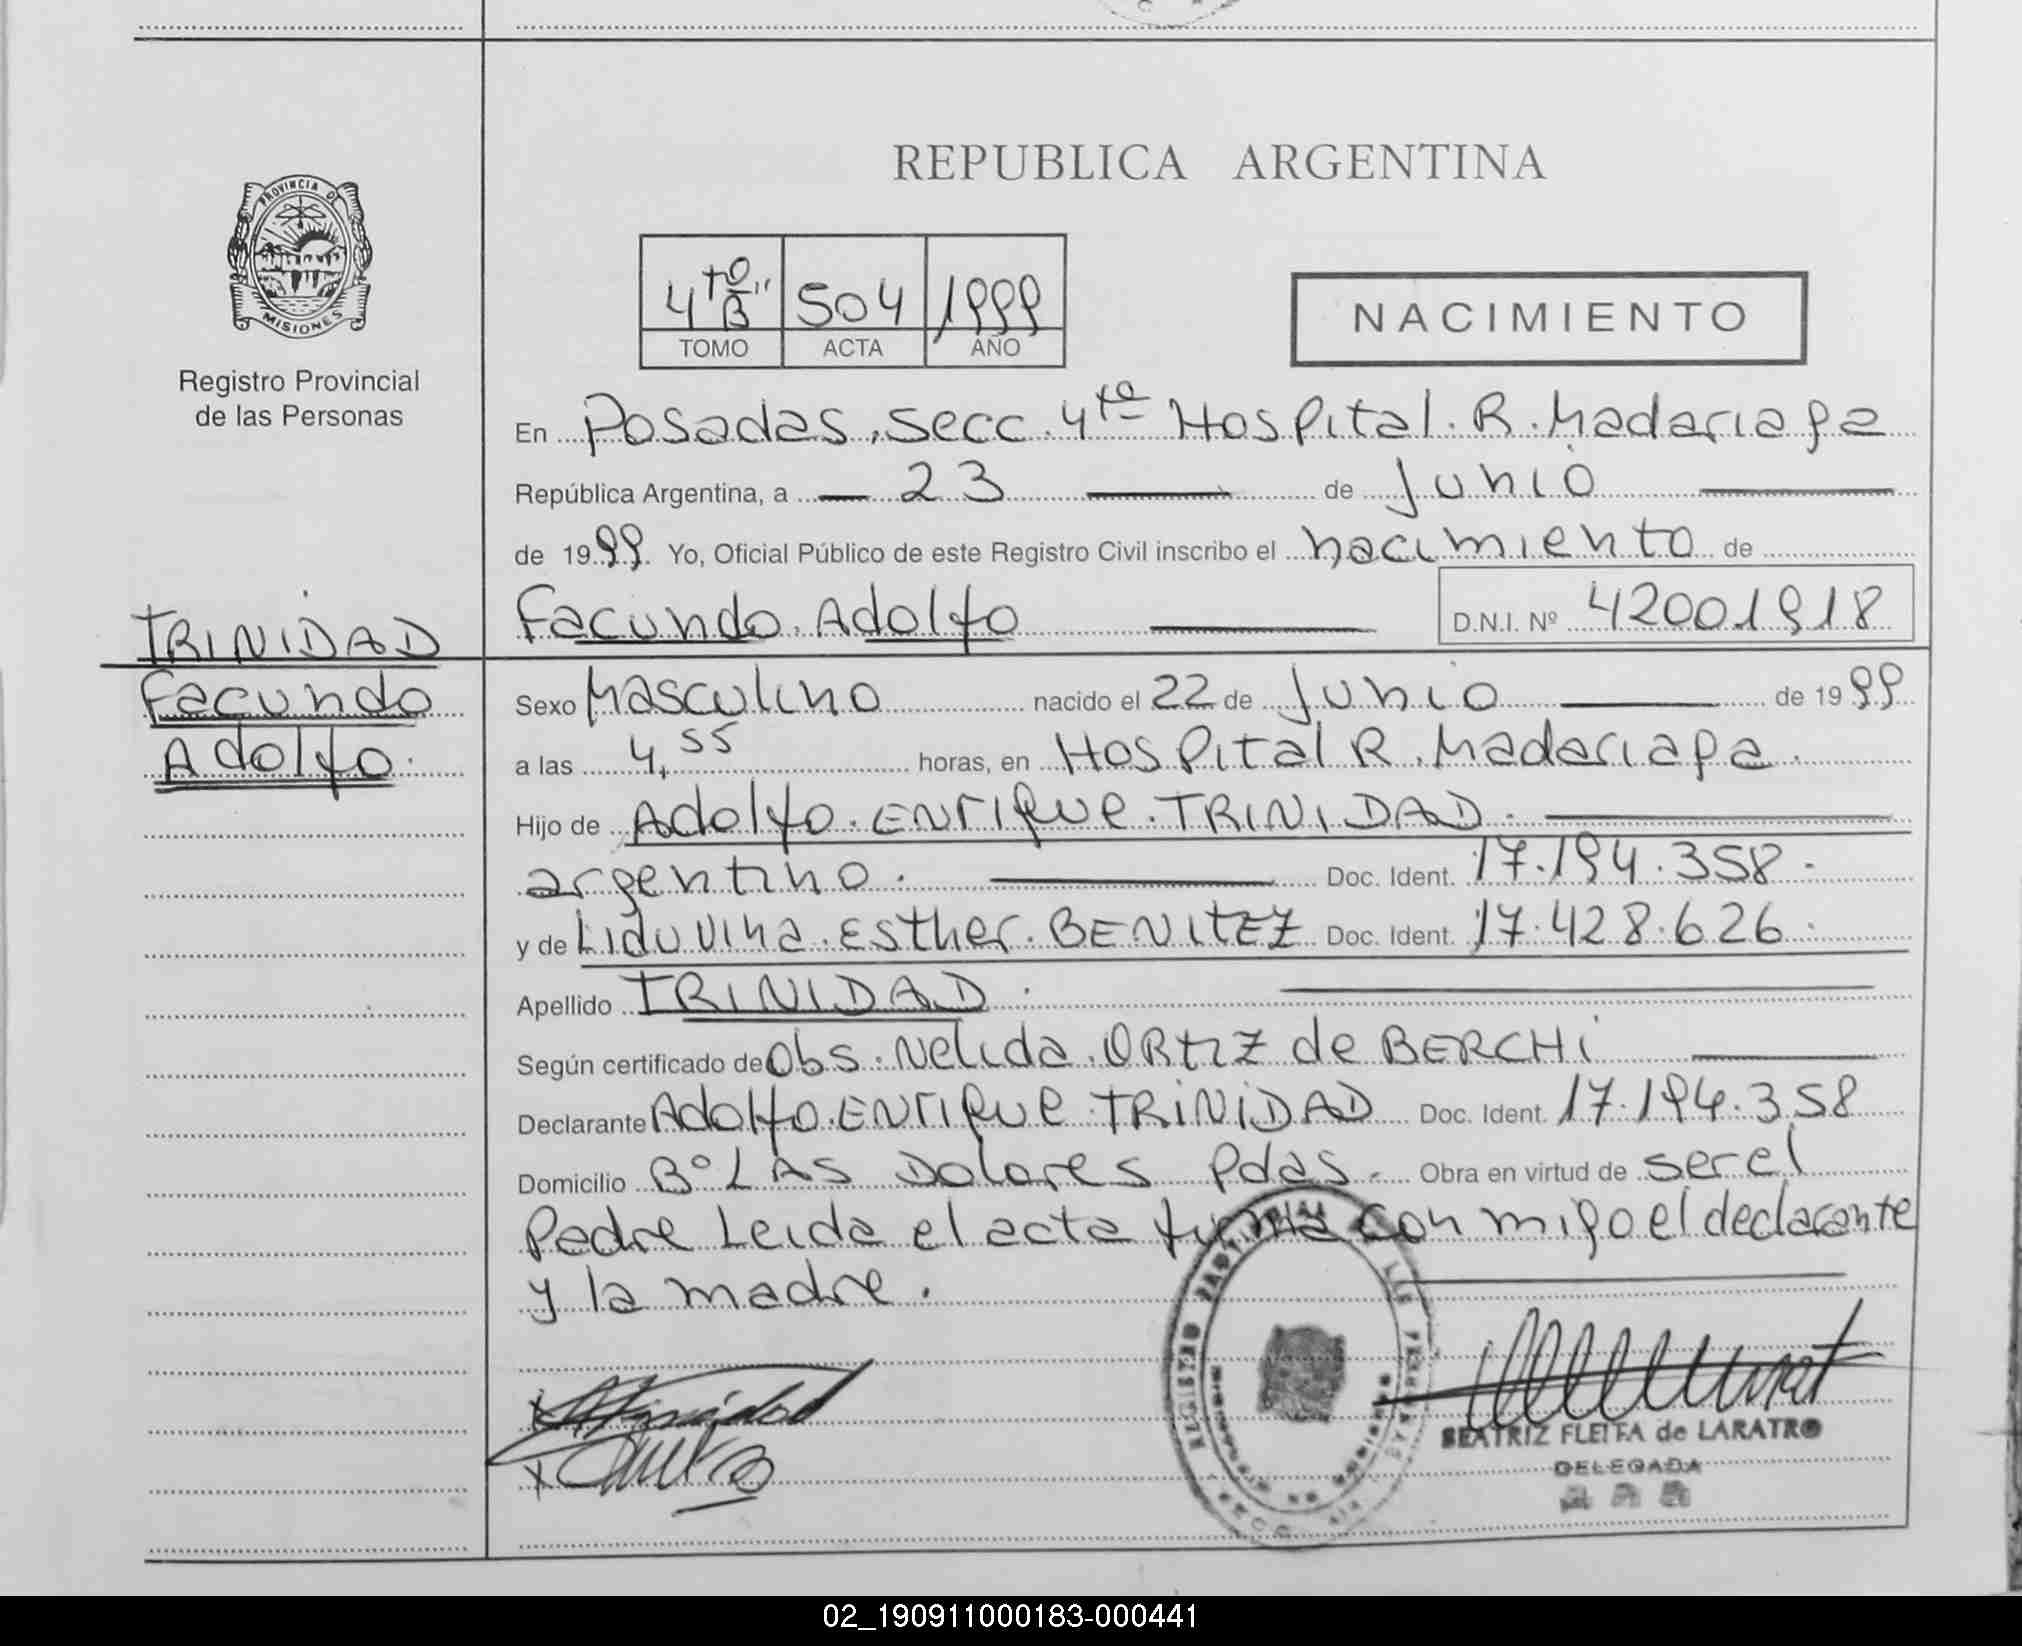 PROVINCIA DE
MISIONES
Registro Provincial
de las Personas
REPUBLICA ARGENTINA
4to "B" 504 1999
TOMO ACTA AÑO
NACIMIENTO
En Posadas, secc. 4ta Hospital. R. Madariaga
República Argentina, a — 23 — de Junio —
de 1999. Yo, Oficial Público de este Registro Civil inscribo el nacimiento de
Facundo. Adolfo — D.N.I. Nº 42001918
TRINIDAD
Facundo
Adolfo.
Sexo Masculino nacido el 22 de Junio — de 1999
a las 4,55 horas, en Hospital R. Madariaga.
Hijo de Adolfo. ENRIQUE. TRINIDAD. —
argentino. — Doc. Ident. 17.194.358.
y de Liduvina. Esther. BENITEZ Doc. Ident. 17.428.626.
Apellido TRINIDAD. —
Según certificado de Obs. Nelida. ORTIZ de BERCHI —
Declarante Adolfo. ENRIQUE. TRINIDAD Doc. Ident. 17.194.358
Domicilio Bº LAS Dolores Pdas. Obra en virtud de ser el
Padre Leida el acta firma con migo el declarante
y la madre. —
BEATRIZ FLEITA de LARATRO
DELEGADA
02_190911000183-000441